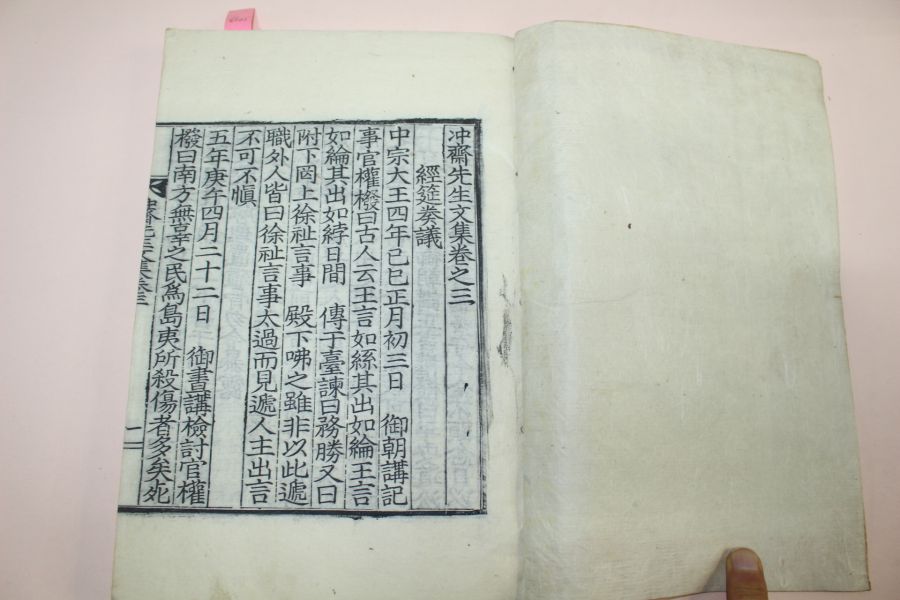 冲齋先生文集卷之三
經筵奏議
中宗大王四年己巳正月初三日 御朝講記
事官權橃曰古人云王言如絲其出如綸王言
如綸其出如綍日間 傳于臺諫曰務勝又曰
附下罔上徐祉言事 殿下咈之雖非以此遞
職外人皆曰徐祉言事太過而見遞人主出言
不可不愼
五年庚午四月二十二日 御晝講檢討官權
橃曰南方無辜之民爲島夷所殺傷者多矣死